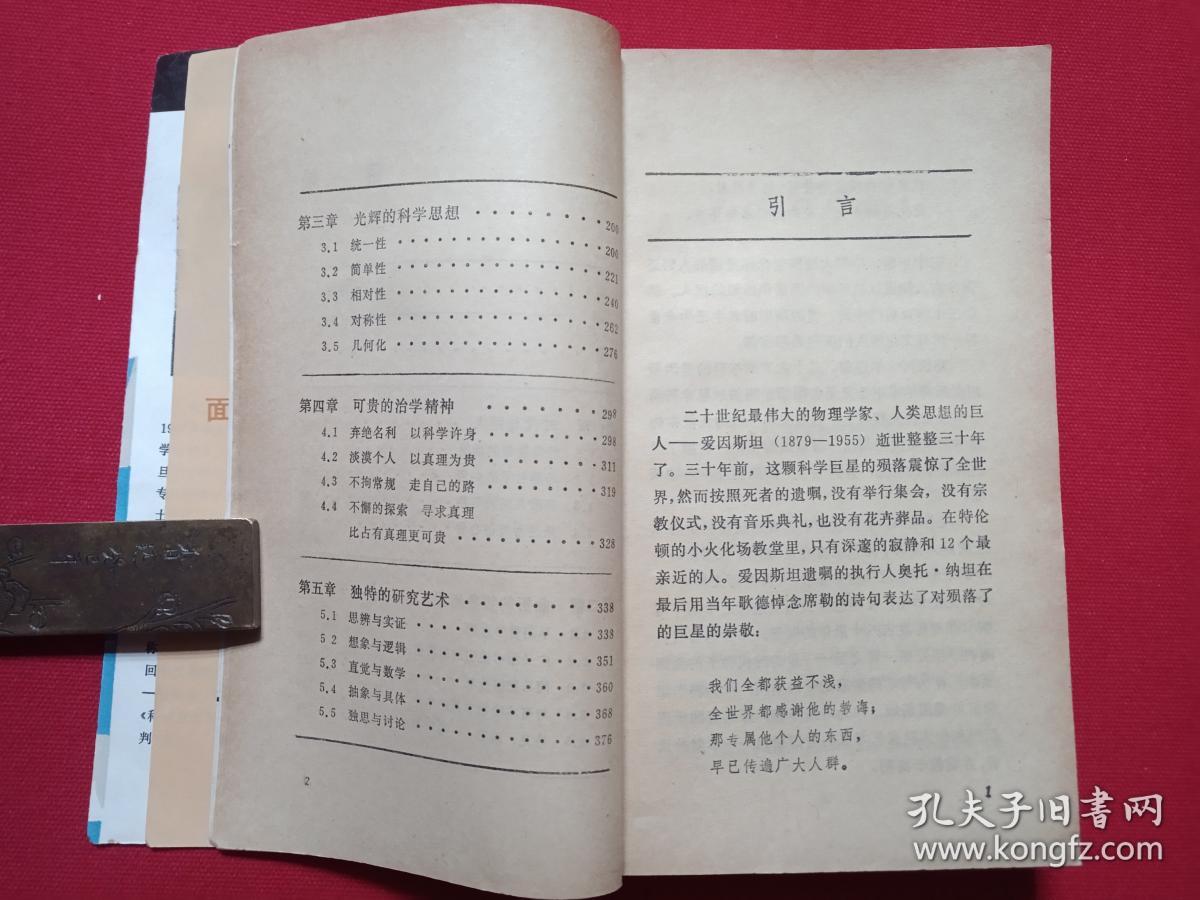 第三章 光辉的科学思想 ········ 200
3.1 统一性 ············ 200
3.2 简单性 ············ 221
3.3 相对性 ············ 240
3.4 对称性 ············ 262
3.5 几何化 ············ 276
第四章 可贵的治学精神 ······· 298
4.1 弃绝名利 以科学许身 ······ 298
4.2 淡漠个人 以真理为贵 ······ 311
4.3 不拘常规 走自己的路 ······ 319
4.4 不懈的探索 寻求真理
比占有真理更可贵 ········ 328
第五章 独特的研究艺术 ········ 338
5.1 思辨与实证 ·········· 338
5 2 想象与逻辑 ·········· 351
5.3 直觉与数学 ·········· 360
5.4 抽象与具体 ·········· 368
5.5 独思与讨论 ·········· 376
2
引 言
二十世纪最伟大的物理学家、人类思想的巨
人——爱因斯坦（1879—1955）逝世整整三十年
了。三十年前，这颗科学巨星的殒落震惊了全世
界，然而按照死者的遗嘱，没有举行集会，没有宗
教仪式，没有音乐典礼，也没有花卉葬品。在特伦
顿的小火化场教堂里，只有深邃的寂静和12个最
亲近的人。爱因斯坦遗嘱的执行人奥托·纳坦在
最后用当年歌德悼念席勒的诗句表达了对殒落了
的巨星的崇敬：
我们全都获益不浅，
全世界都感谢他的教诲；
那专属他个人的东西，
早已传遍广大人群。
1
面
19
学
旦
专
士
回
—
《科
判
孔夫子旧书网
www.kongfz.com